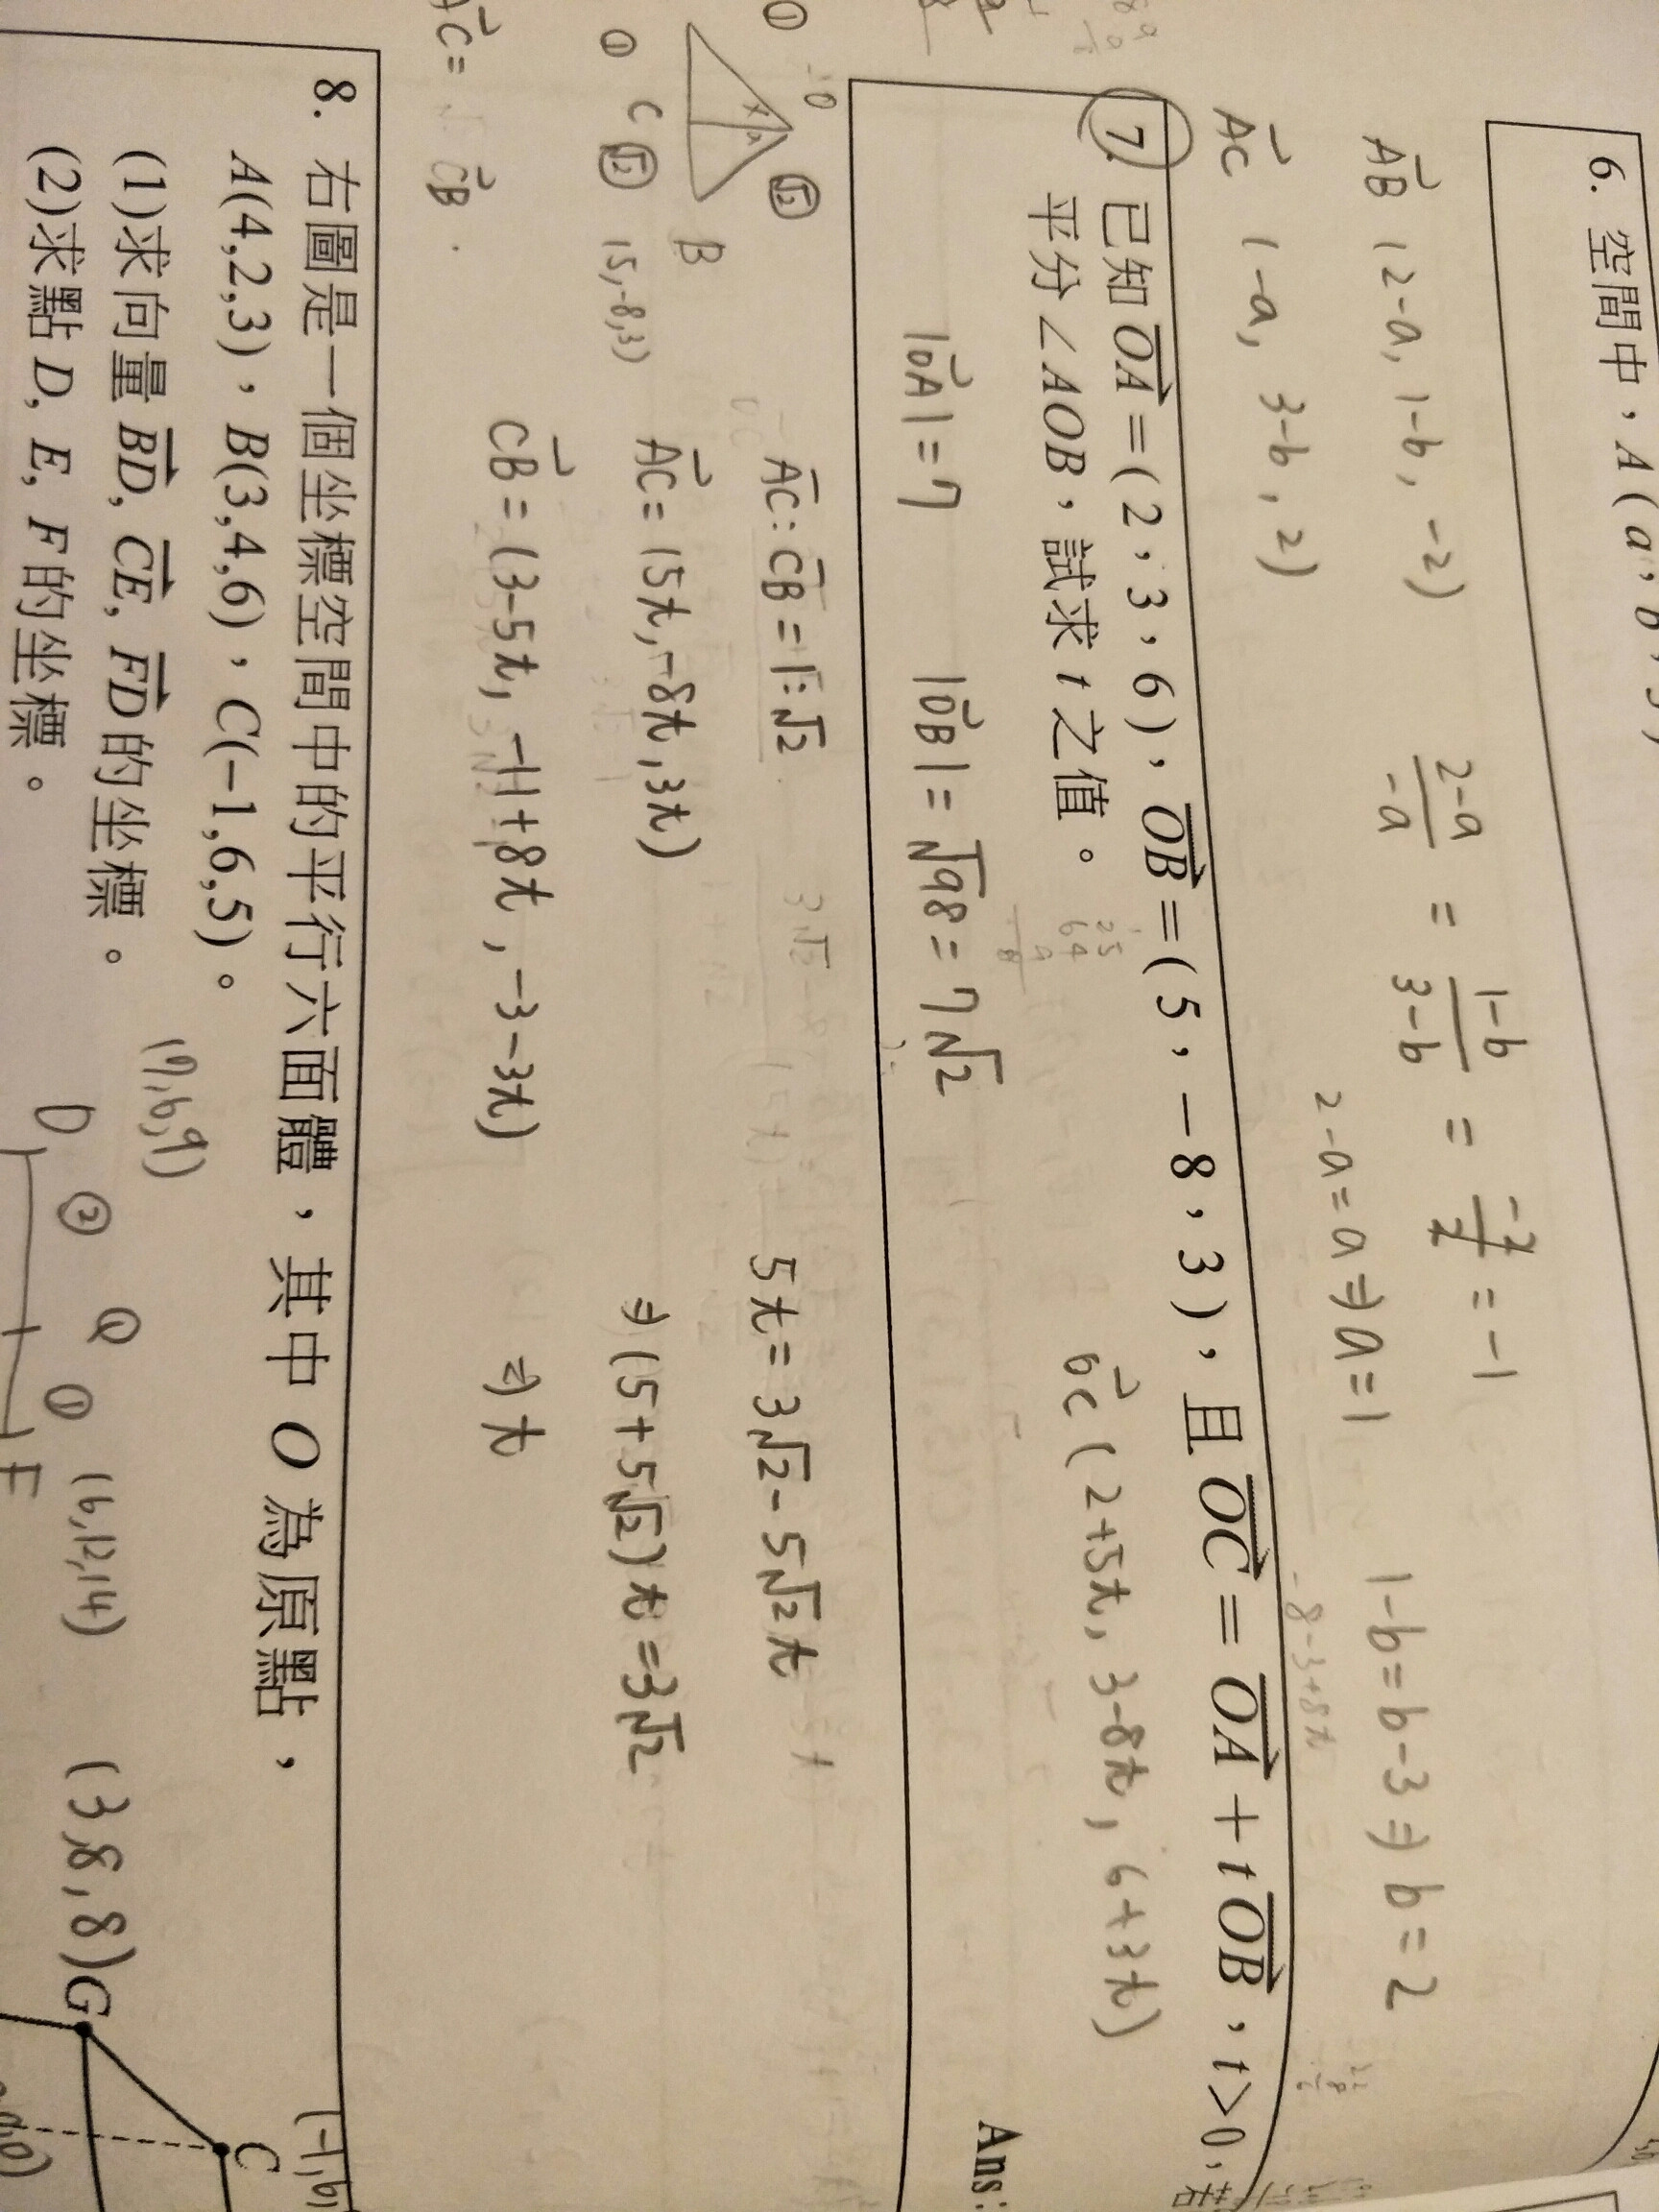 6. 空間中，A(a，b，
AB (2-a, 1-b, -2)
AC (-a, 3-b, 2)
2-a/-a = 1-b/3-b = -2/2 = -1
2-a=a⇒a=1
1-b=b-3⇒b=2
-8-3+8t
7. 已知 OA=(2，3，6)，OB=(5，-8，3)，且 OC=OA+tOB，t>0，若
平分∠AOB，試求 t 之值。
OC (2+5t, 3-8t, 6+3t)
Ans:
|OA|=7 |OB|=√98=7√2
① √2
B
① C √2 (5,-8,3)
AC:CB=1:√2
AC=(5t,-8t,3t)
CB=(3-5t, -11+8t, -3-3t)
5t=3√2-5√2t
⇒(5+5√2)t=3√2
⇒t
AC= √2 CB
8. 右圖是一個坐標空間中的平行六面體，其中 O 為原點，
A(4,2,3)，B(3,4,6)，C(-1,6,5)。
(1)求向量 BD, CE, FD 的坐標。
(2)求點 D, E, F 的坐標。
(7,6,9)
D ② Q ① F
(6,12,14)
(3,8,8)G
C
(-1,6,